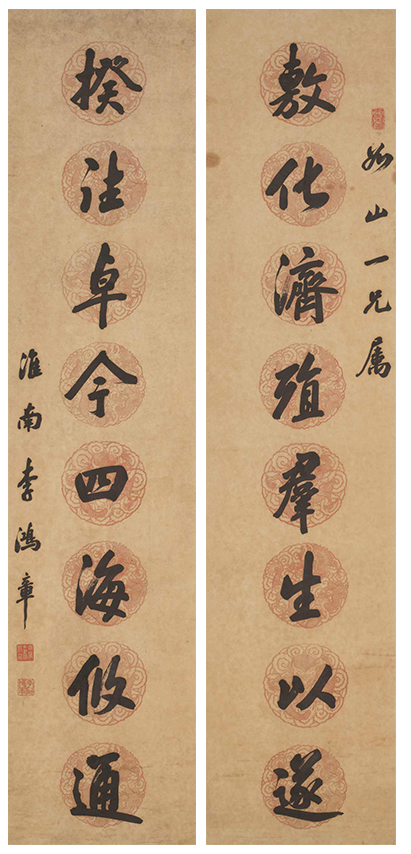 如山一兄属
敷化濟殖羣生以遂
揆往卓今四海攸通
淮南李鴻章